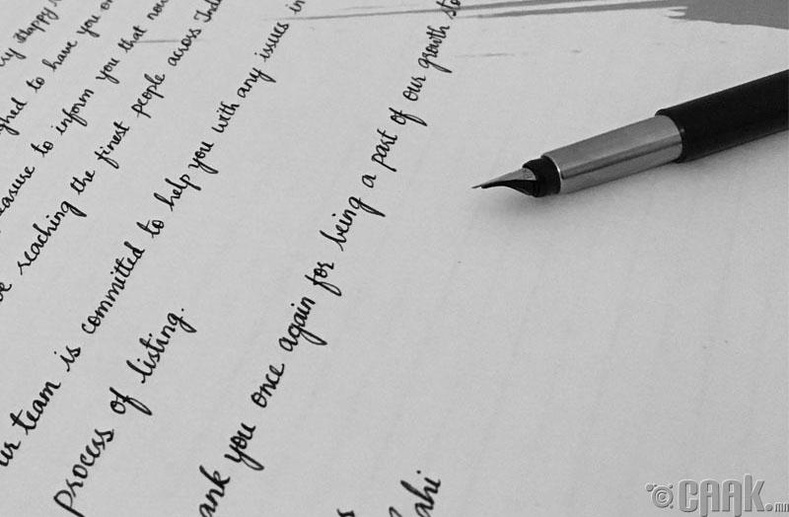 ry Happy
ghed to have you on
leasure to inform you that now
be reaching the finest people across Ind
ur team is committed to help you with any issues in
process of listing.
ank you once again for being a part of our growth sto
ahi
©CAAK.mn